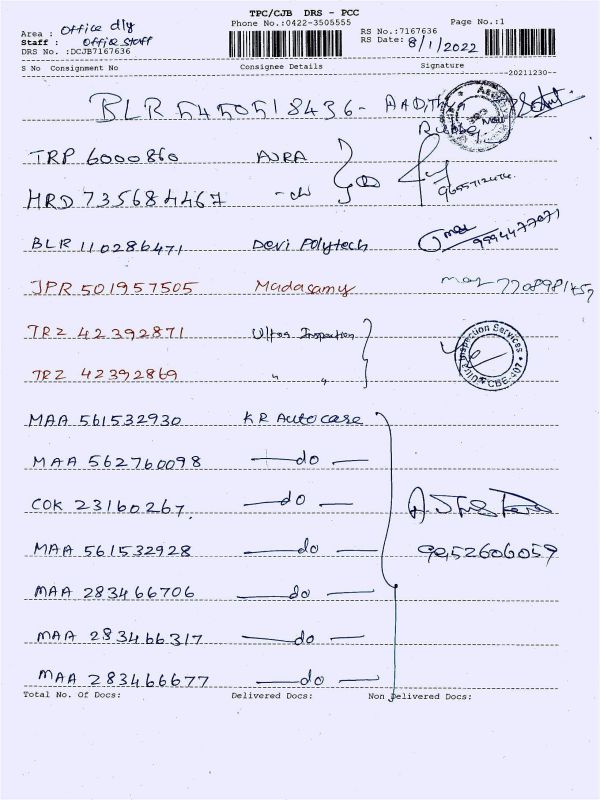 TPC/CJB DRS - PCC
Area : Office dly Phone No.:0422-3505555 RS No.:7167636 Page No.:1
Staff : Office staff RS Date: 8/1/2022
DRS No. :DCJB7167636
S No Consignment No Consignee Details Signature
--20211230--
BLR 5450518436- Aadithya
Rubber
TRP 6000860 AJRA
HRD 735684467 9655712474
BLR 110286471 Devi Polytech 9994477071
JPR 501957505 Madasamy
TRZ 42392871 Ultra Inspection
TRZ 42392869 〃 〃
Ultra Inspection Services * CBE-407 *
MAA 561532930 KR Autocase
MAA 562760098 —do—
COK 23160267. —do—
MAA 561532928 —do— 9952606059
MAA 283466706 —do—
MAA 283466317 —do—
MAA 283466677 —do—
Total No. Of Docs: Delivered Docs: Non Delivered Docs: